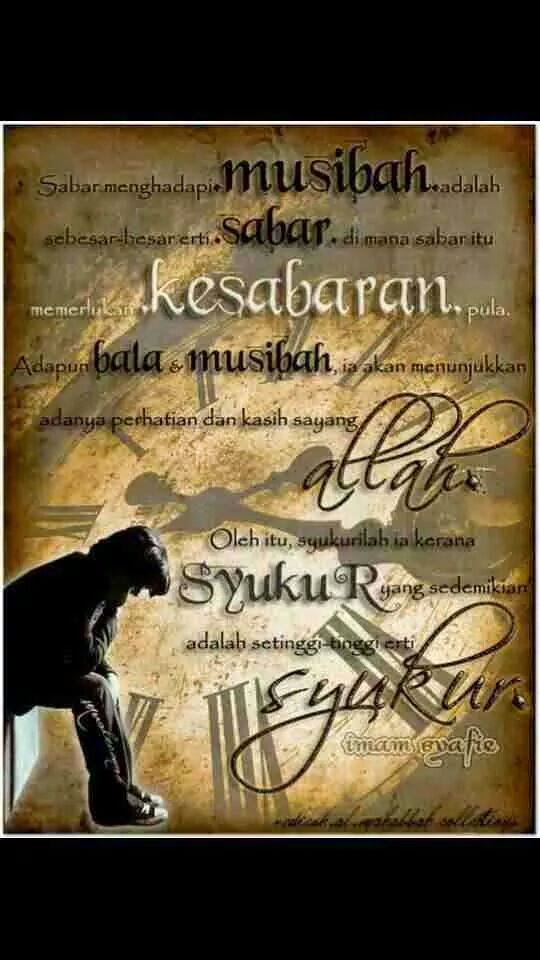 Sabar menghadapi musibah adalah
sebesar-besar erti sabar, di mana sabar itu
memerlukan kesabaran pula.
Adapun bala & musibah, ia akan menunjukkan
adanya perhatian dan kasih sayang
allah.
Oleh itu, syukurilah ia kerana
SyukuR yang sedemikian
adalah setinggi-tinggi erti
syukur.
imam syafie
al mahabbah